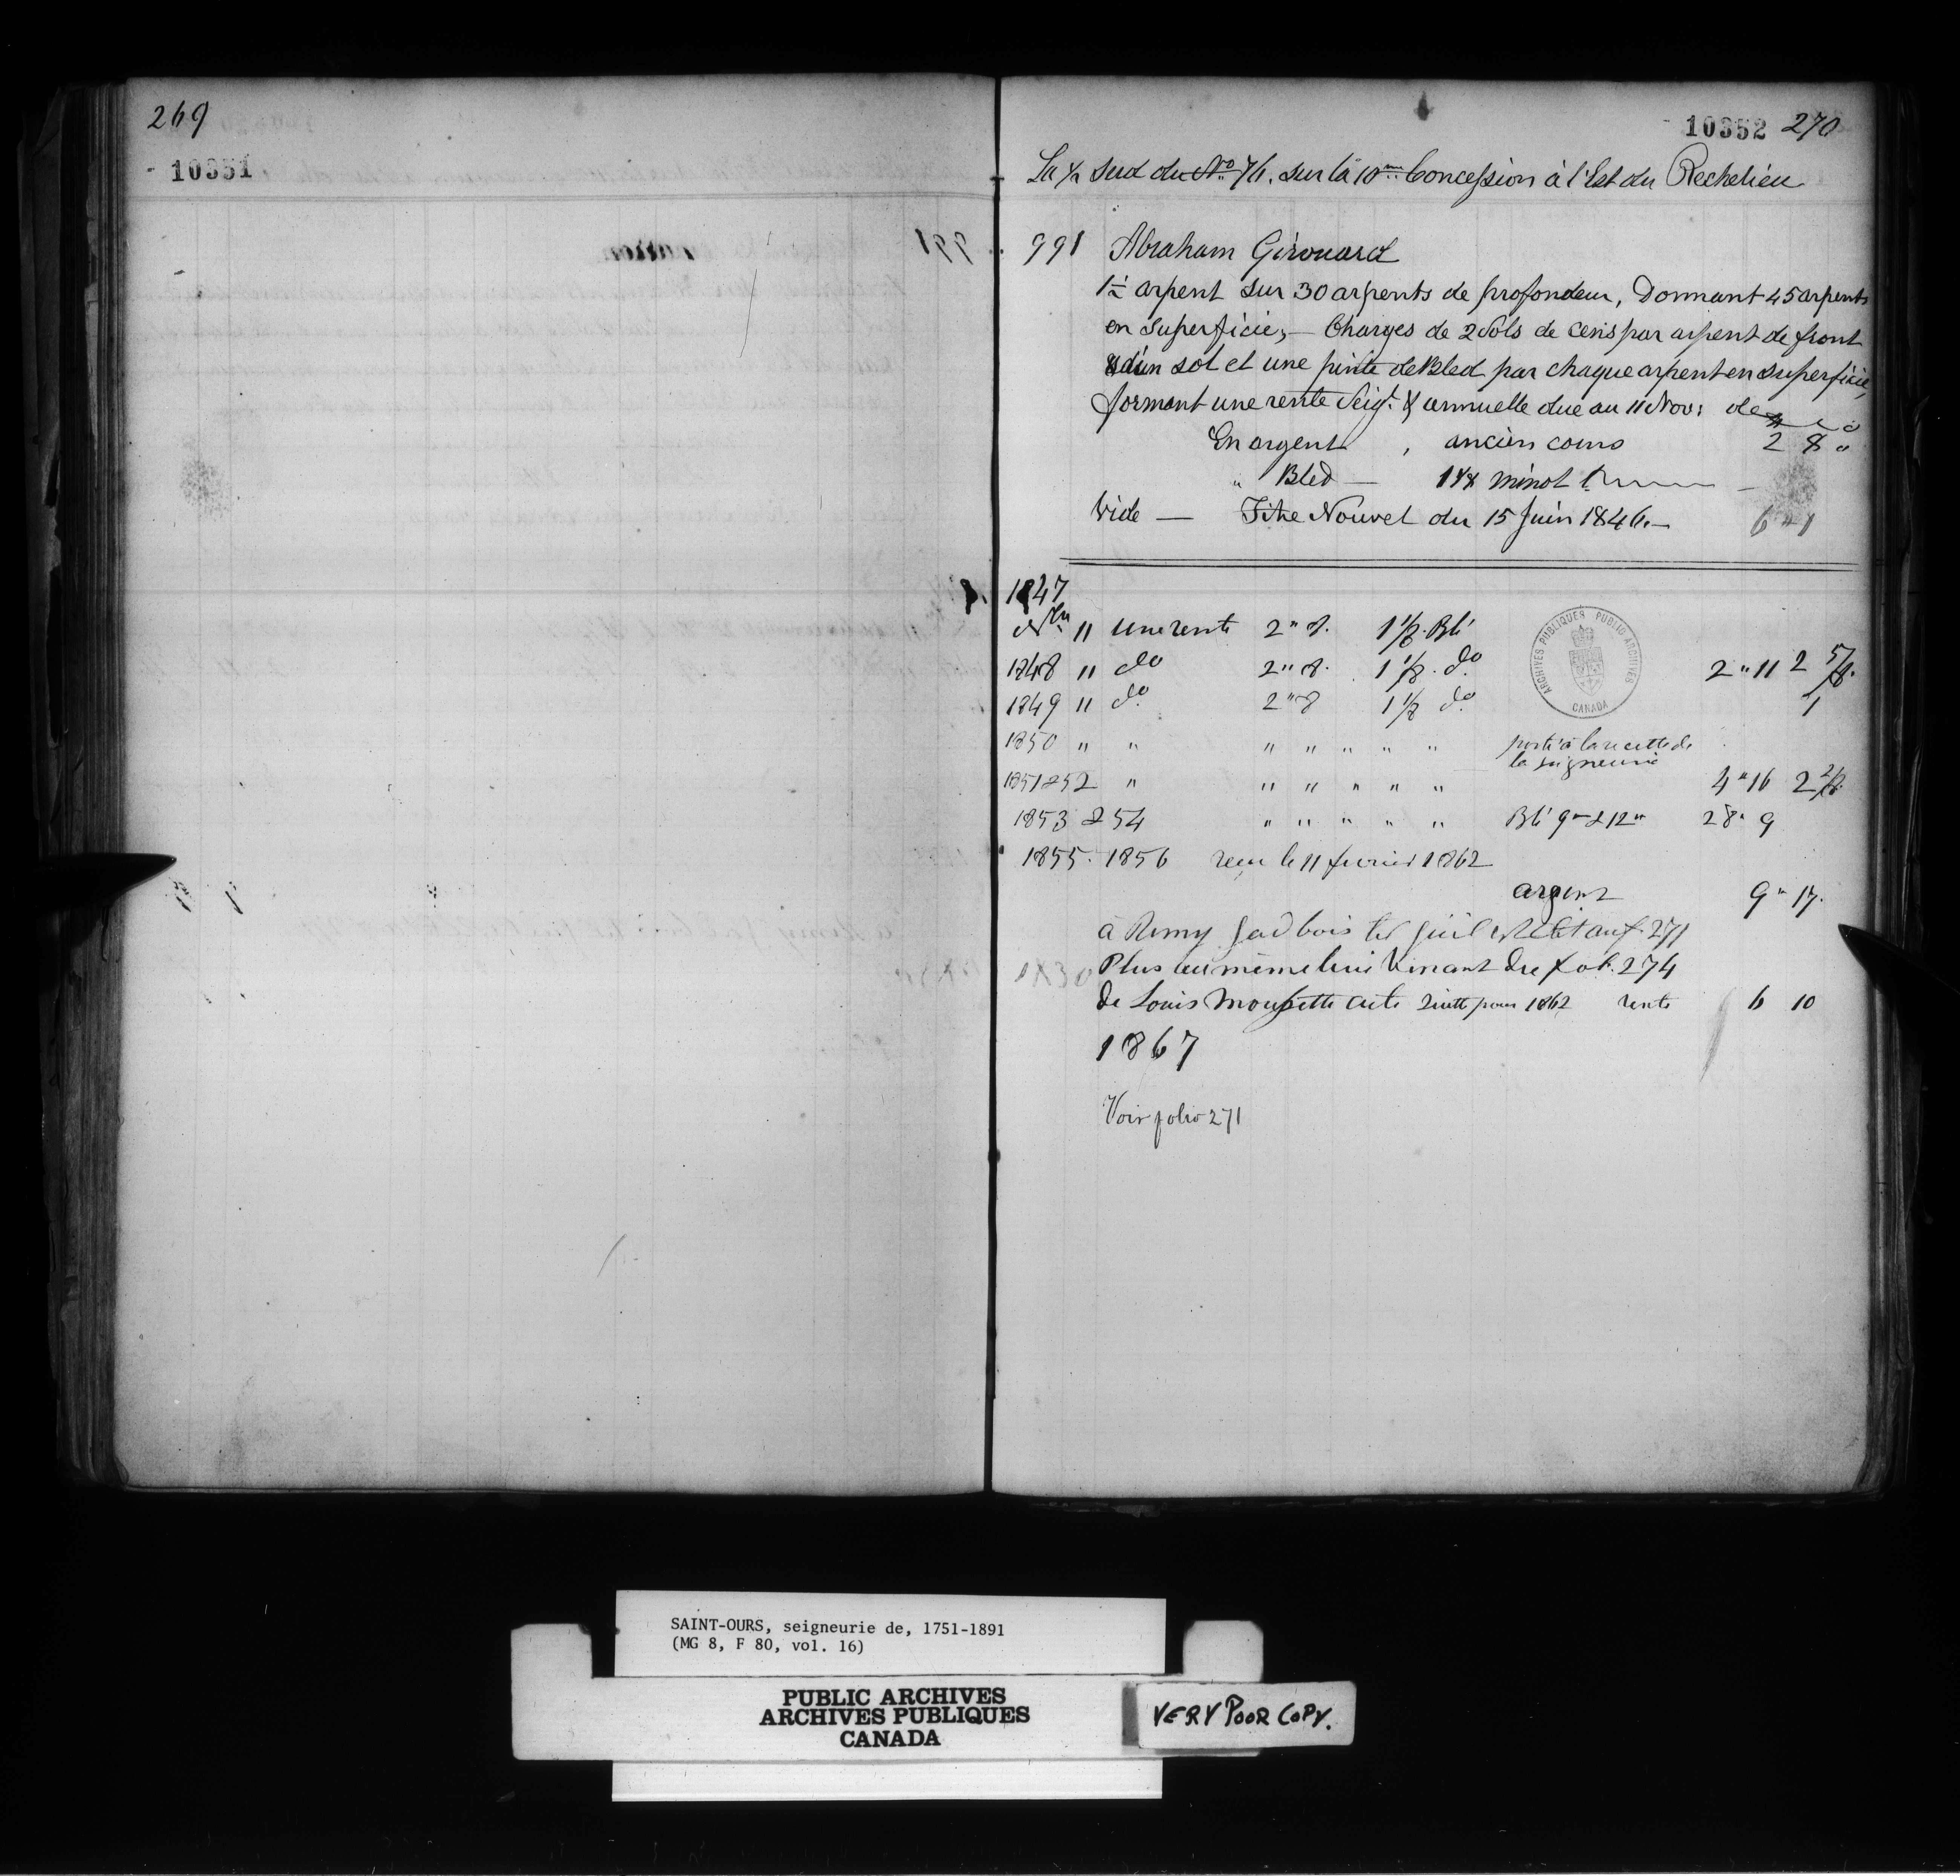 269
10351
10352 270
La ½ sud du No 76. sur la 10me Concession à l'Est du Rechelieu
991 Abraham Girouard
1½ arpent sur 30 arpents de profondeur, Donnant 45 arpents
en superficie, — Charges de 2 Sols de cens par arpent de front
& d'un sol et une pinte de Bled par chaque arpent en superficie,
formant une rente Seigl. & annuelle due au 11 Nov: de
En argent, ancien cours 2 8 "
" Bled — 1 1/8 minot
Vide — Titre Nouvel du 15 Juin 1846. — 6 " 1
1847
Nbre 11 Une rente 2 " 8. 1 1/8. Blé
1848 11 do 2 " 8. 1 1/8. do 2 " 11 2 5/8.
1849 11 do 2 " 8 1 1/8 do 1
1850 " " " " " " " porté à la recette de
la seigneurie
1851 & 52 " " " " " " 4 " 16 2 2/8
1853 & 54 " " " " " Blé 9 " & 12 " 28 " 9
1855. 1856 recu le 11 fevrier 1862
argent 9 " 17.
à Remy Jadbois 271
Plus au même lieu Venant du fol. 274
de Louis Moussette acte quitte pour 1862 rente 6 10
1867
Voir folio 271
ARCHIVES PUBLIQUES PUBLIC ARCHIVES
CANADA
SAINT-OURS, seigneurie de, 1751-1891
(MG 8, F 80, vol. 16)
PUBLIC ARCHIVES
ARCHIVES PUBLIQUES
CANADA
VERY POOR COPY.